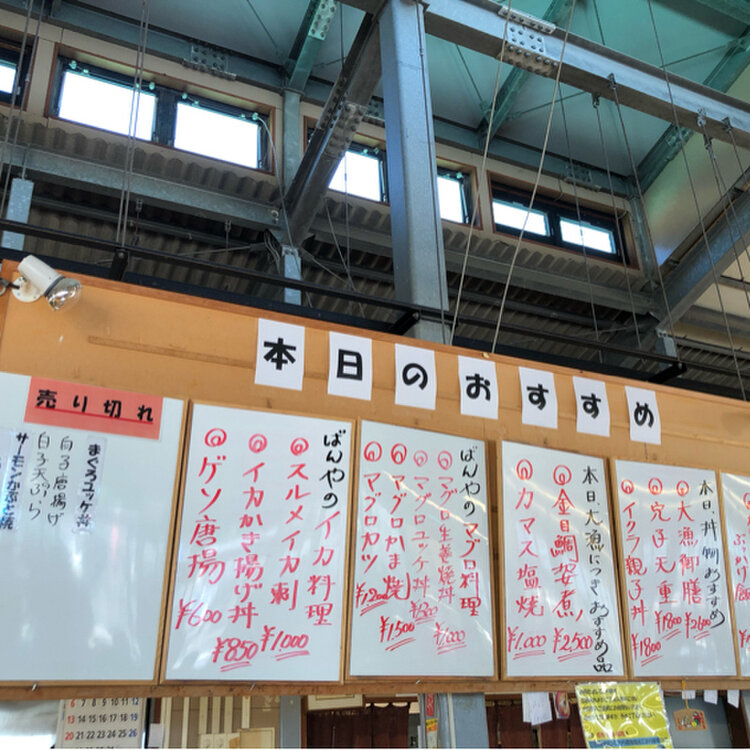 本日のおすすめ
売り切れ
まぐろユッケ丼
白子唐揚げ
白子天ぷら
サーモンかぶと焼
ばんやのイカ料理
スルメイカ刺
¥1,000
イカかき揚げ丼
¥850
ゲソ唐揚
¥600
ばんやのマグロ料理
マグロ生姜焼丼
¥1,000
マグロユッケ丼
¥800
マグロかま焼
¥1500
マグロカツ
¥1200
本日大漁につきおすすめ品
金目鯛姿煮
¥2,500
カマス塩焼
¥1,000
本日丼物おすすめ
大漁御膳
¥2600
穴子天重
¥1800
イクラ親子丼
¥1800
6 7 8 9 10 11 12
13 14 15 16 17 18 19
20 21 22 23 24 25 26